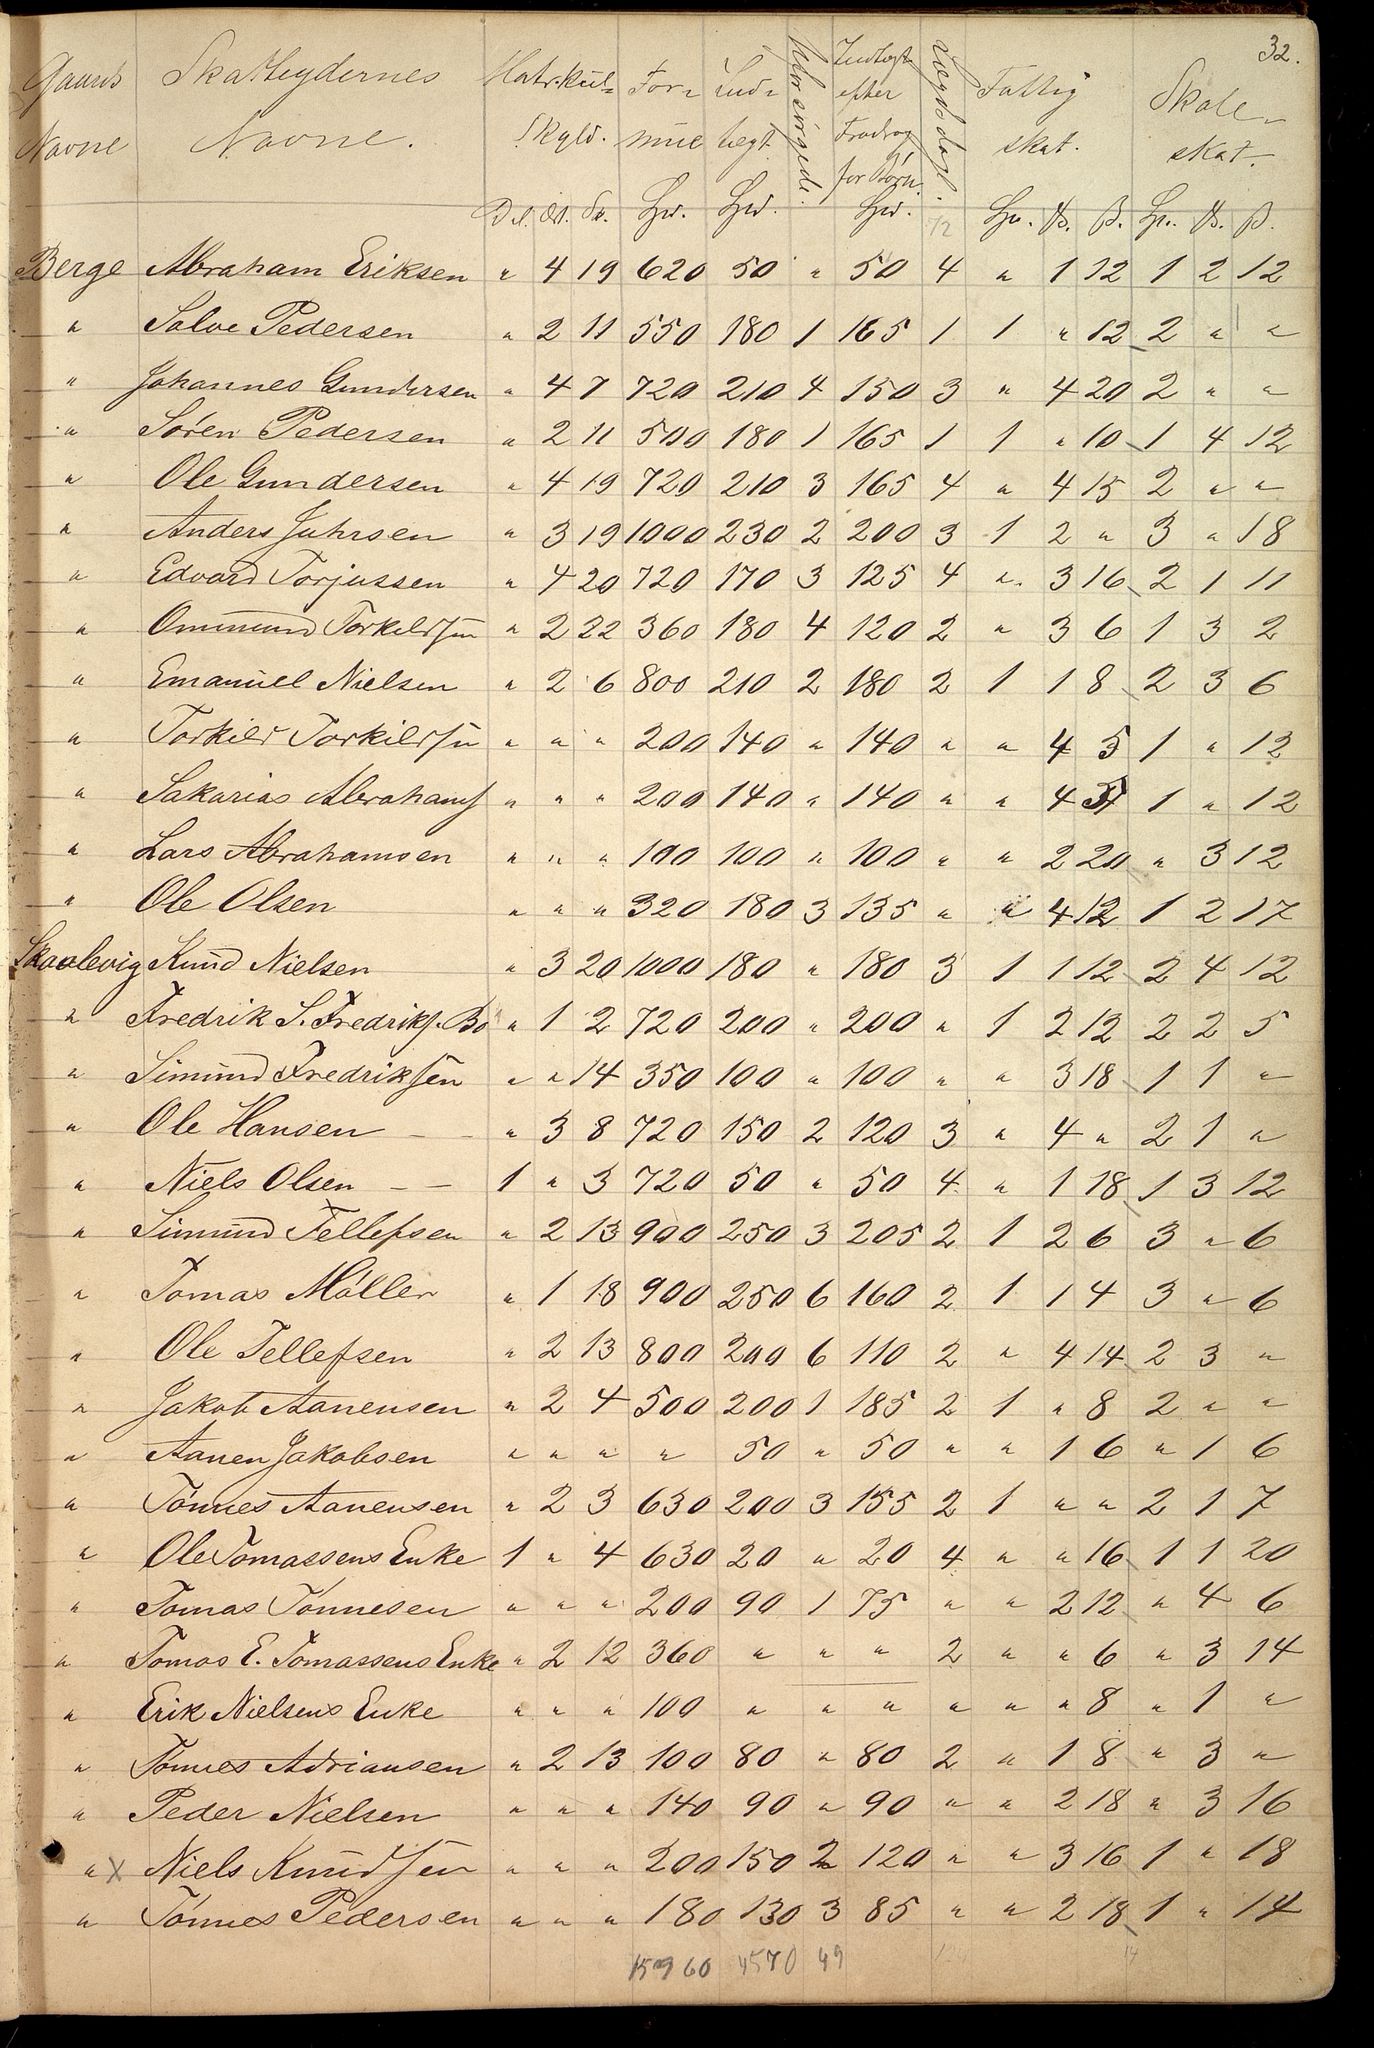 32.
Gaards Navne Skatteydernes Navne. Matrikul- Skyld. For- mue Ind- tægt. Forsørgede. Indtægt efter Fradrag for Børn. Lægdsdage. Fattig skat. Skole- skat.
Dl. Ort. Sk. Spd. Spd. Spd. 1/2 Sp. Ƀ. β. Sp. Ƀ. β.
Berge Abraham Eriksen " 4 19 620 50 " 50 4 " 1 12 1 2 12
" Salve Pedersen " 2 11 550 180 1 165 1 1 " 12 2 " "
" Johannes Gundersen " 4 7 720 210 4 150 3 " 4 20 2 " "
" Søren Pedersen " 2 11 500 180 1 165 1 1 " 10 1 4 12
" Ole Gundersen " 4 19 720 210 3 165 4 " 4 15 2 " "
" Anders Juhrsen " 3 19 1000 230 2 200 3 1 2 " 3 " 18
" Edvard Torjussen " 4 20 720 170 3 125 4 " 3 16 2 1 11
" Ommund Torkildsen " 2 22 360 180 4 120 2 " 3 6 1 3 2
" Emanuel Nielsen " 2 6 800 210 2 180 2 1 1 8 2 3 6
" Torkild Torkildsen " " " 200 140 " 140 " " 4 5 1 " 12
" Sakarias Abrahams " " " 200 140 " 140 " " 4 1 " 12
" Lars Abrahamsen " " " 100 100 " 100 " " 2 20 " 3 12
" Ole Olsen " " " 320 180 3 135 " " 4 12 1 2 17
Skaalevig Knud Nielsen " 3 20 1000 180 " 180 3 1 1 12 2 4 12
" Fredrik S. Fredriks. Bo " 1 2 720 200 " 200 " 1 2 12 2 2 5
" Simund Fredriksen " " 14 350 100 " 100 " " 3 18 1 1 "
" Ole Hansen - - " 3 8 720 150 2 120 3 " 4 " 2 1 "
" Niels Olsen - - 1 " 3 720 50 " 50 4 " 1 18 1 3 12
" Simund Tellefsen " 2 13 900 250 3 205 2 1 2 6 3 " 6
" Tomas Møller " 1 18 900 250 6 160 2 1 1 4 3 " 6
" Ole Tellefsen " 2 13 800 200 6 110 2 " 4 14 2 3 "
" Jakob Aanensen " 2 4 500 200 1 185 2 1 " 8 2 " "
" Aanen Jakobsen " " " " 50 " 50 " " 1 6 " 1 6
" Tønnes Aanensen " 2 3 630 200 3 155 2 1 " " 2 1 7
" Ole Tomassens Enke 1 " 4 630 20 " 20 4 " " 16 1 1 20
" Tomas Tønnesen " " " 200 90 1 75 " " 2 12 " 4 6
" Tomas E. Tomassens Enke " 2 12 360 " " " 2 " " 6 " 3 14
" Erik Nielsens Enke " " " 100 " " " " " " 8 " 1 "
" Tønnes Adriansen " 2 13 100 80 " 80 2 " 1 8 " 3 "
" Peder Nielsen " " " 140 90 " 90 " " 2 18 " 3 16
" x Niels Knudsen " " " 200 150 2 120 " " 3 16 1 " 18
" Tønnes Pedersen " " " 180 130 3 85 " " 2 18 1 " 14
15960 4570 49 14